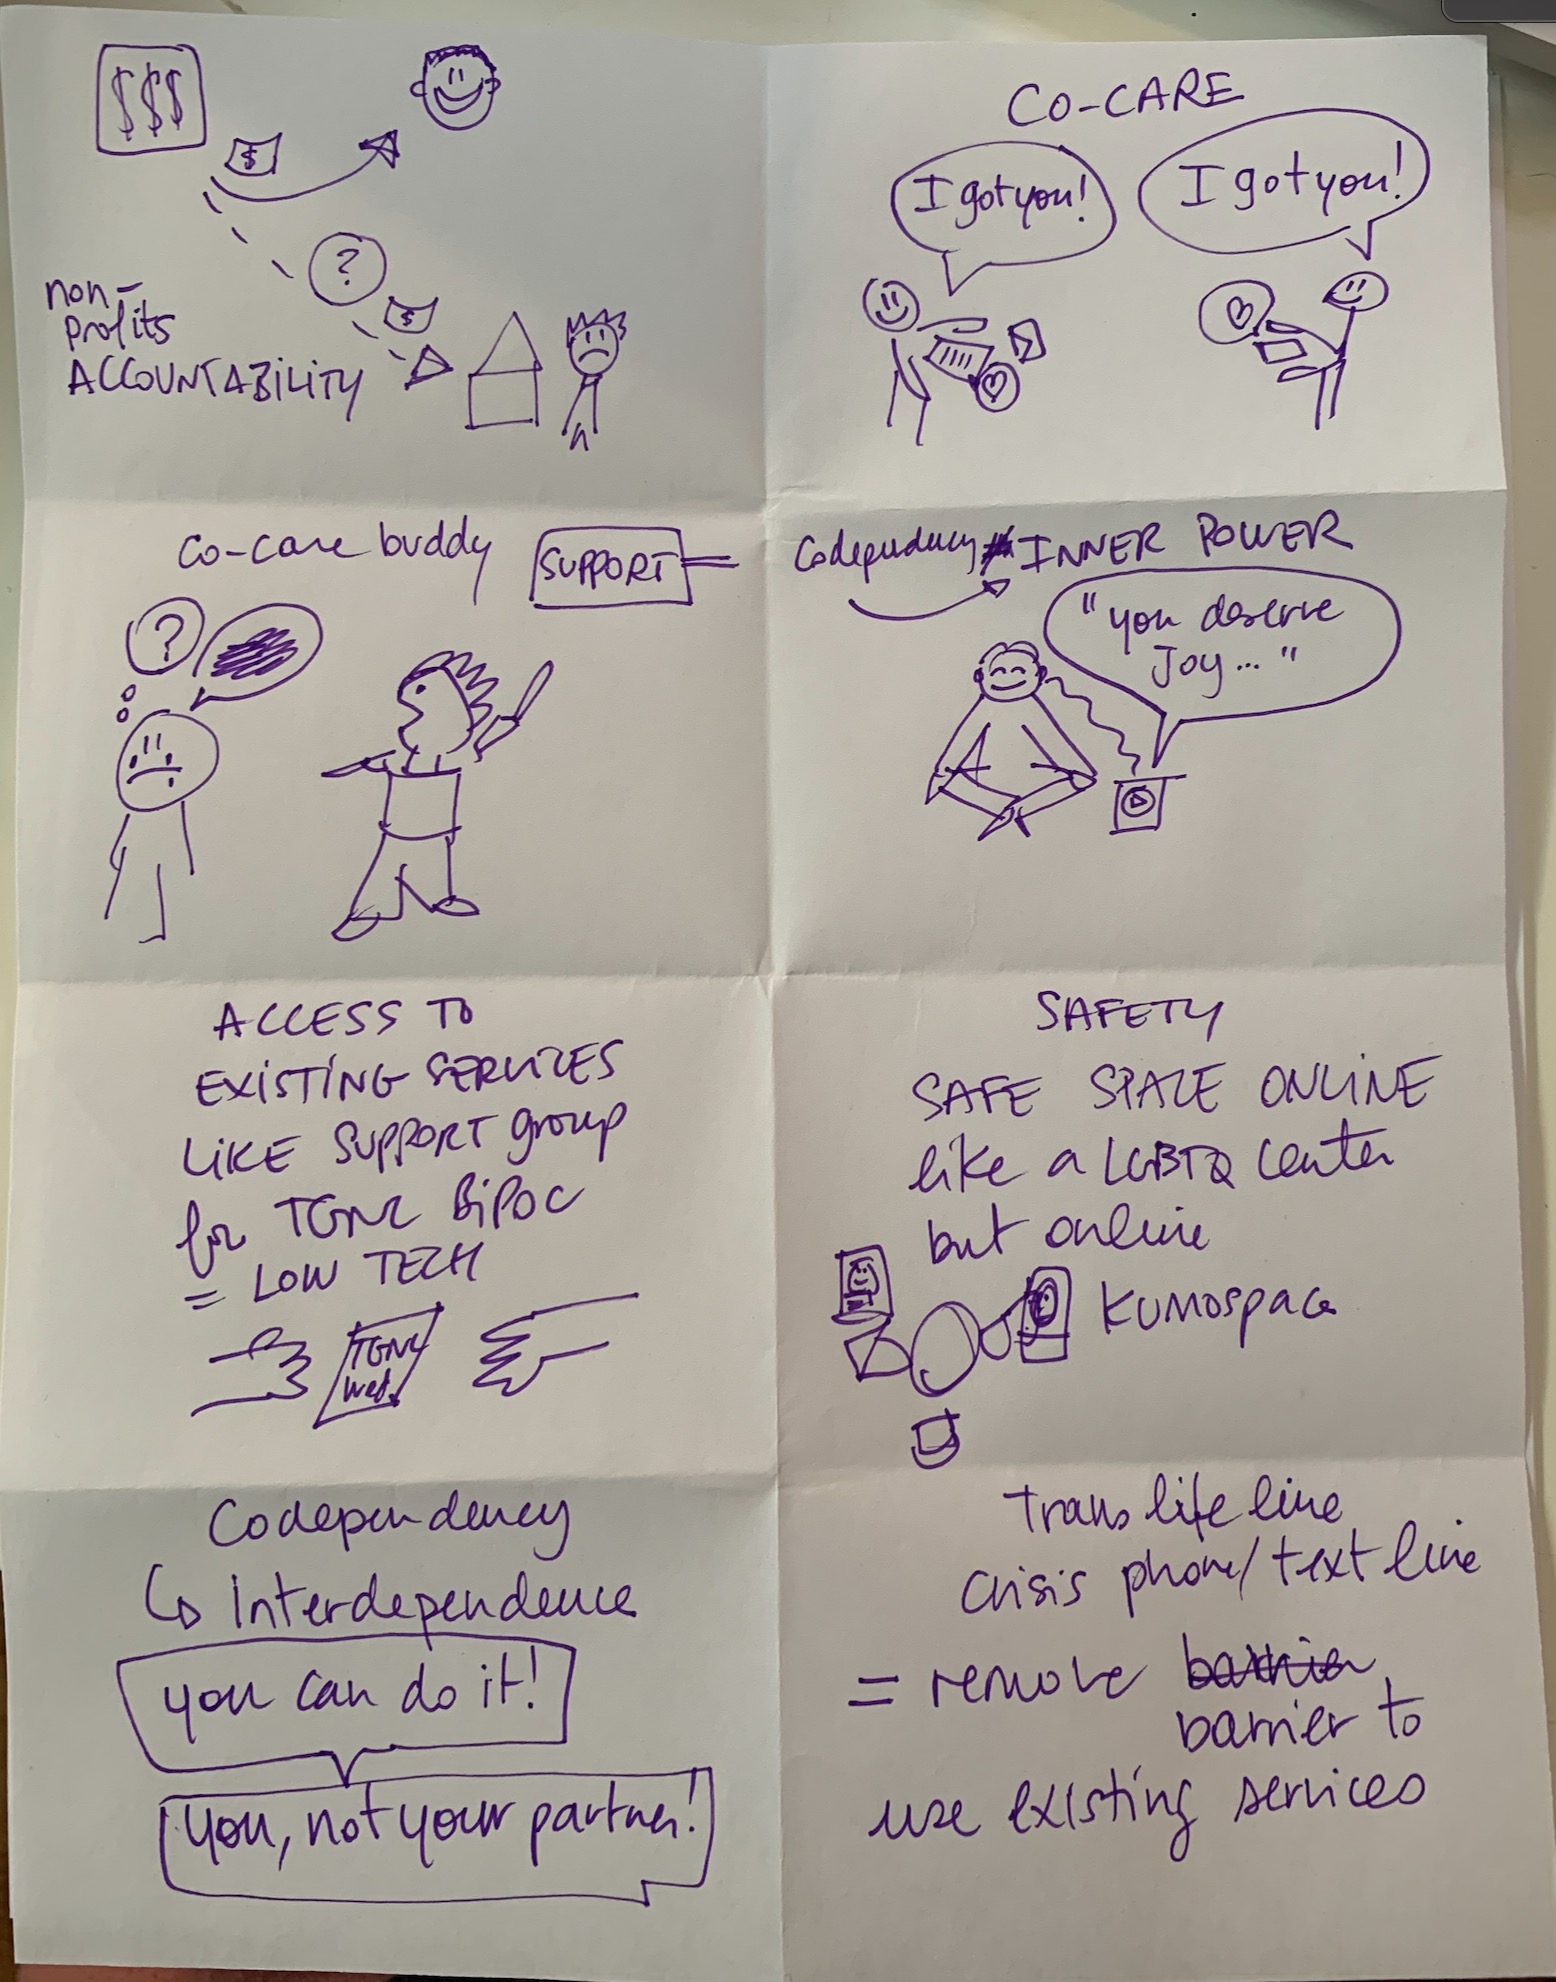 $$$
$
?
$
non-
profits
ACCOUNTABILITY
CO-CARE
I got you!
I got you!
Co-care buddy
SUPPORT
?
Codependency
INNER POWER
"you deserve
Joy..."
ACCESS TO
EXISTING SERVICES
LIKE SUPPORT group
for TGNC BIPOC
= LOW TECH
TGNC
SAFETY
SAFE SPACE ONLINE
like a LGBTQ center
but online
Kumospace
Codependency
Interdependence
you can do it!
You, not your partner!
Trans life line
Crisis phone/text line
= remove
barrier to
use existing services